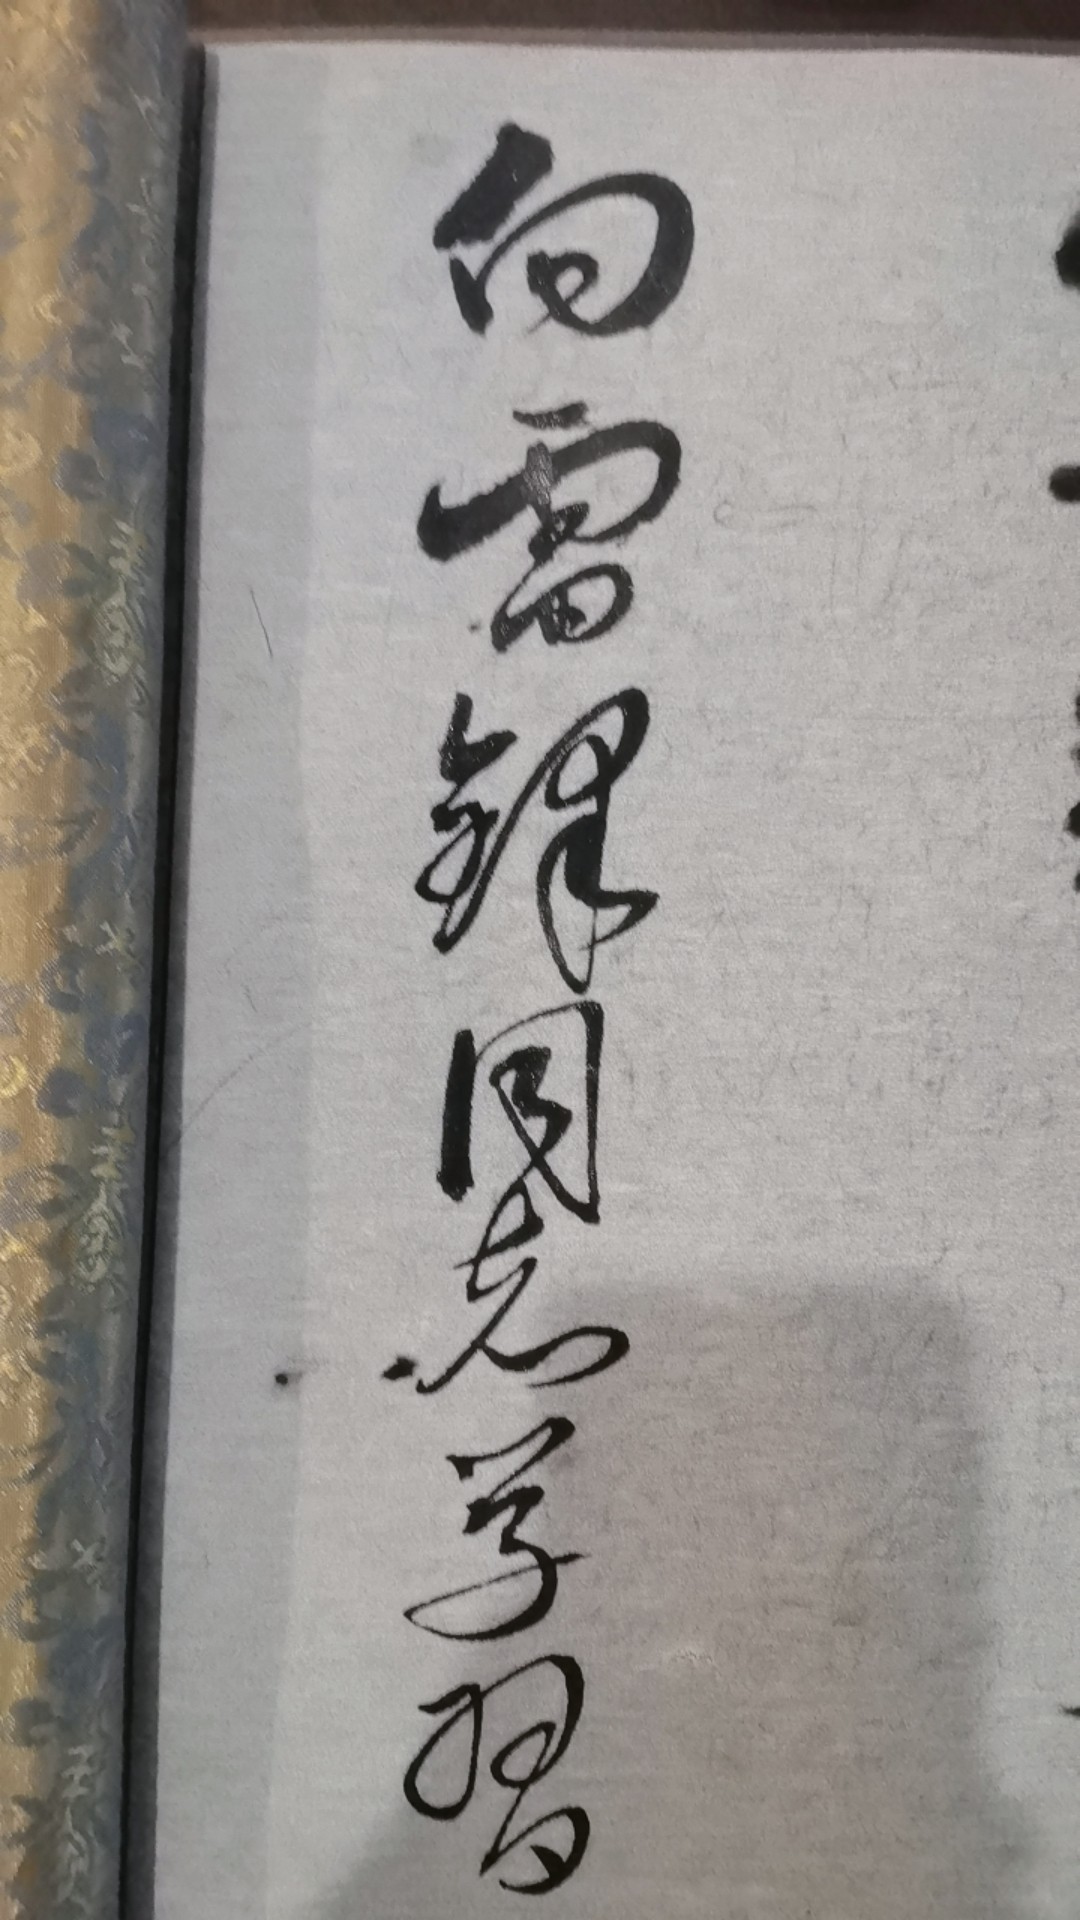 向雷锋同志学习